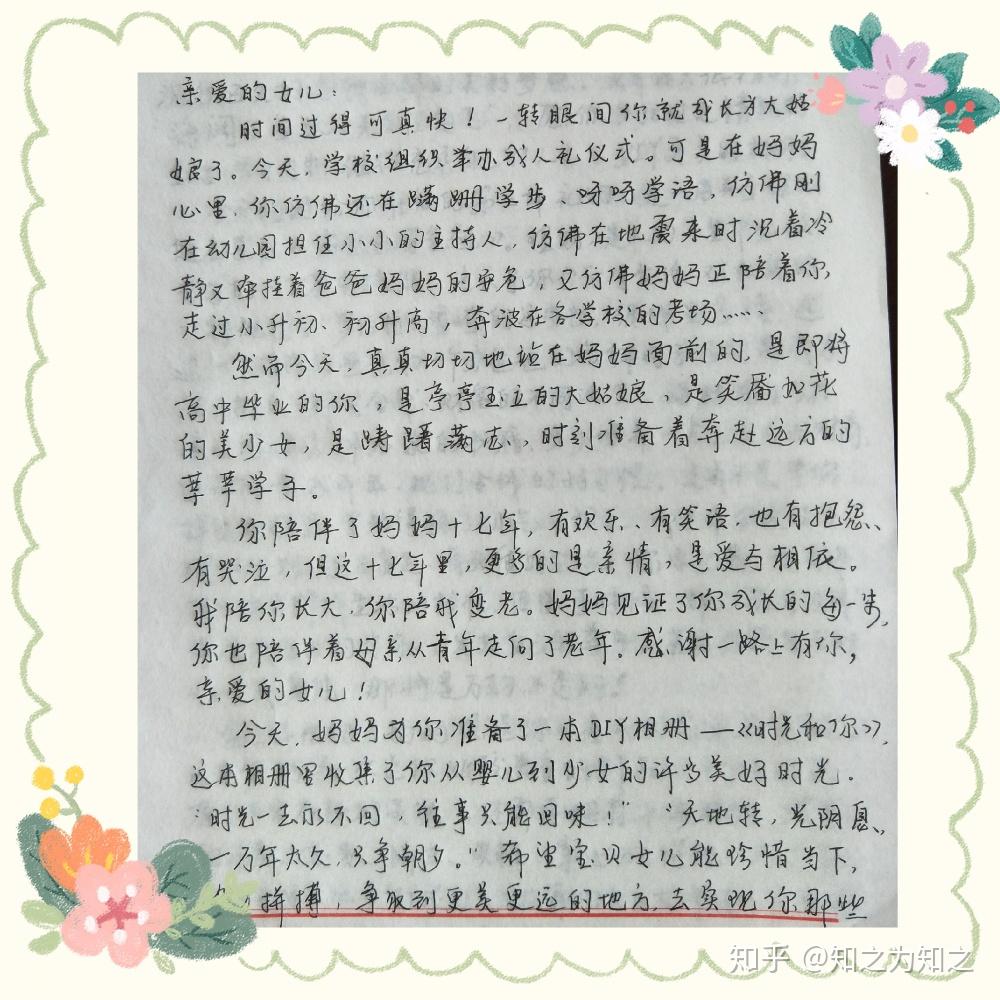 亲爱的女儿：
时间过得可真快！一转眼间你就成长为大姑
娘了。今天，学校组织举办成人礼仪式。可是在妈妈
心里，你仿佛还在蹒跚学步、呀呀学语，仿佛刚
在幼儿园担任小小的主持人，仿佛在地震来时沉着冷
静又牵挂着爸爸妈妈的安危，又仿佛妈妈正陪着你
走过小升初、初升高，奔波在各学校的考场……
然而今天，真真切切地站在妈妈面前的，是即将
高中毕业的你，是亭亭玉立的大姑娘，是笑靥如花
的美少女，是踌躇满志，时刻准备着奔赴远方的
莘莘学子。
你陪伴了妈妈十七年，有欢乐、有笑语，也有抱怨、
有哭泣，但这十七年里，更多的是亲情，是爱与相依。
我陪你长大，你陪我变老。妈妈见证了你成长的每一步，
你也陪伴着母亲从青年走向了老年。感谢一路上有你，
亲爱的女儿！
今天，妈妈为你准备了一本DIY相册——《时光和你》，
这本相册里收集了你从婴儿到少女的许多美好时光。
“时光一去永不回，往事只能回味！”“天地转，光阴迫、
一万年太久，只争朝夕。”希望宝贝女儿能珍惜当下，
拼搏，争取到更美更远的地方，去实现你那些
知乎 @知之为知之